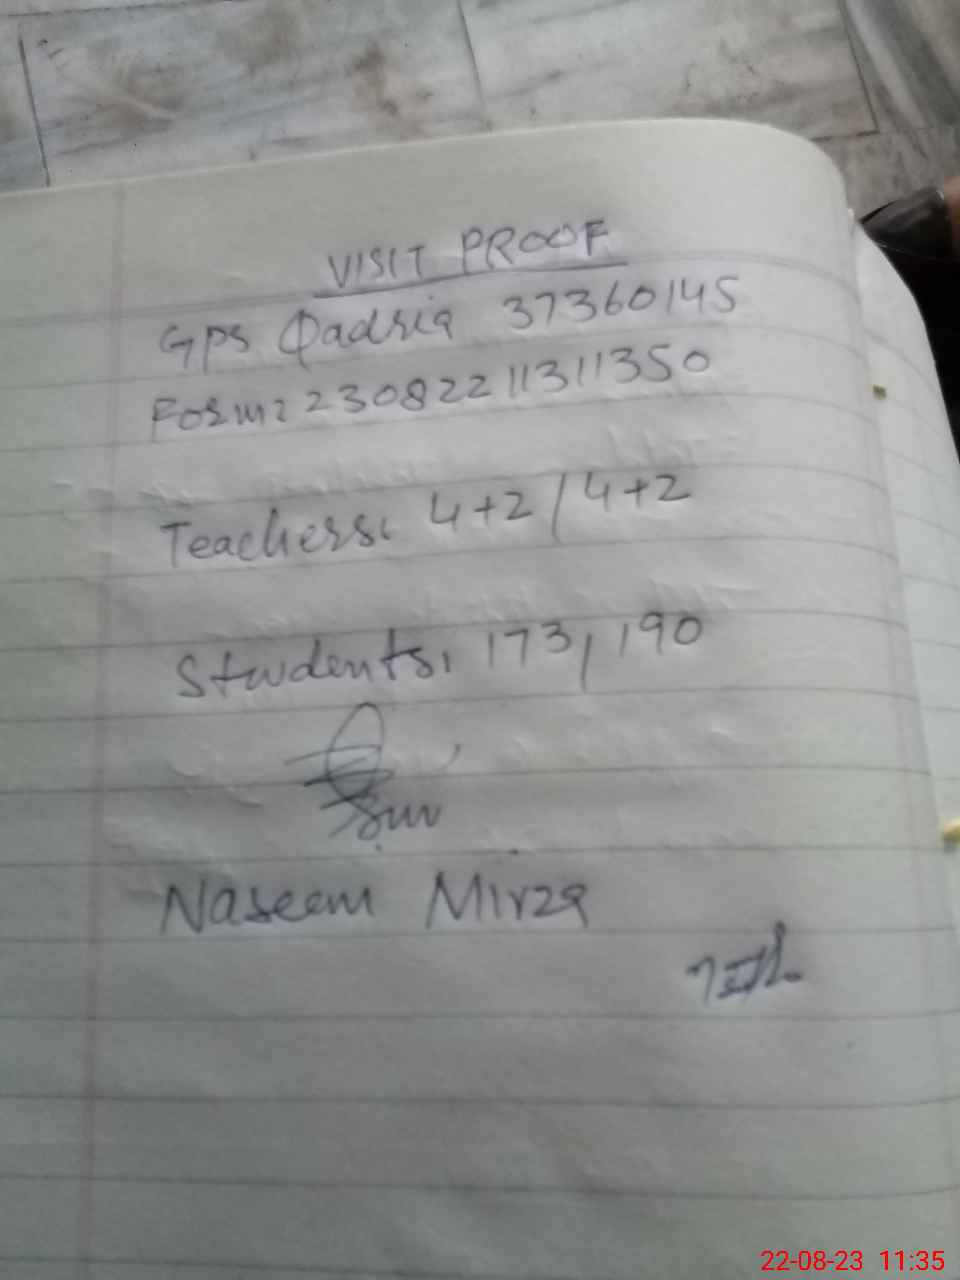 VISIT PROOF
GPS Qadria 37360145
Form: 23082211311350
Teachers: 4+2/4+2
Students: 173/190
Naseem Mirza
22-08-23 11:35